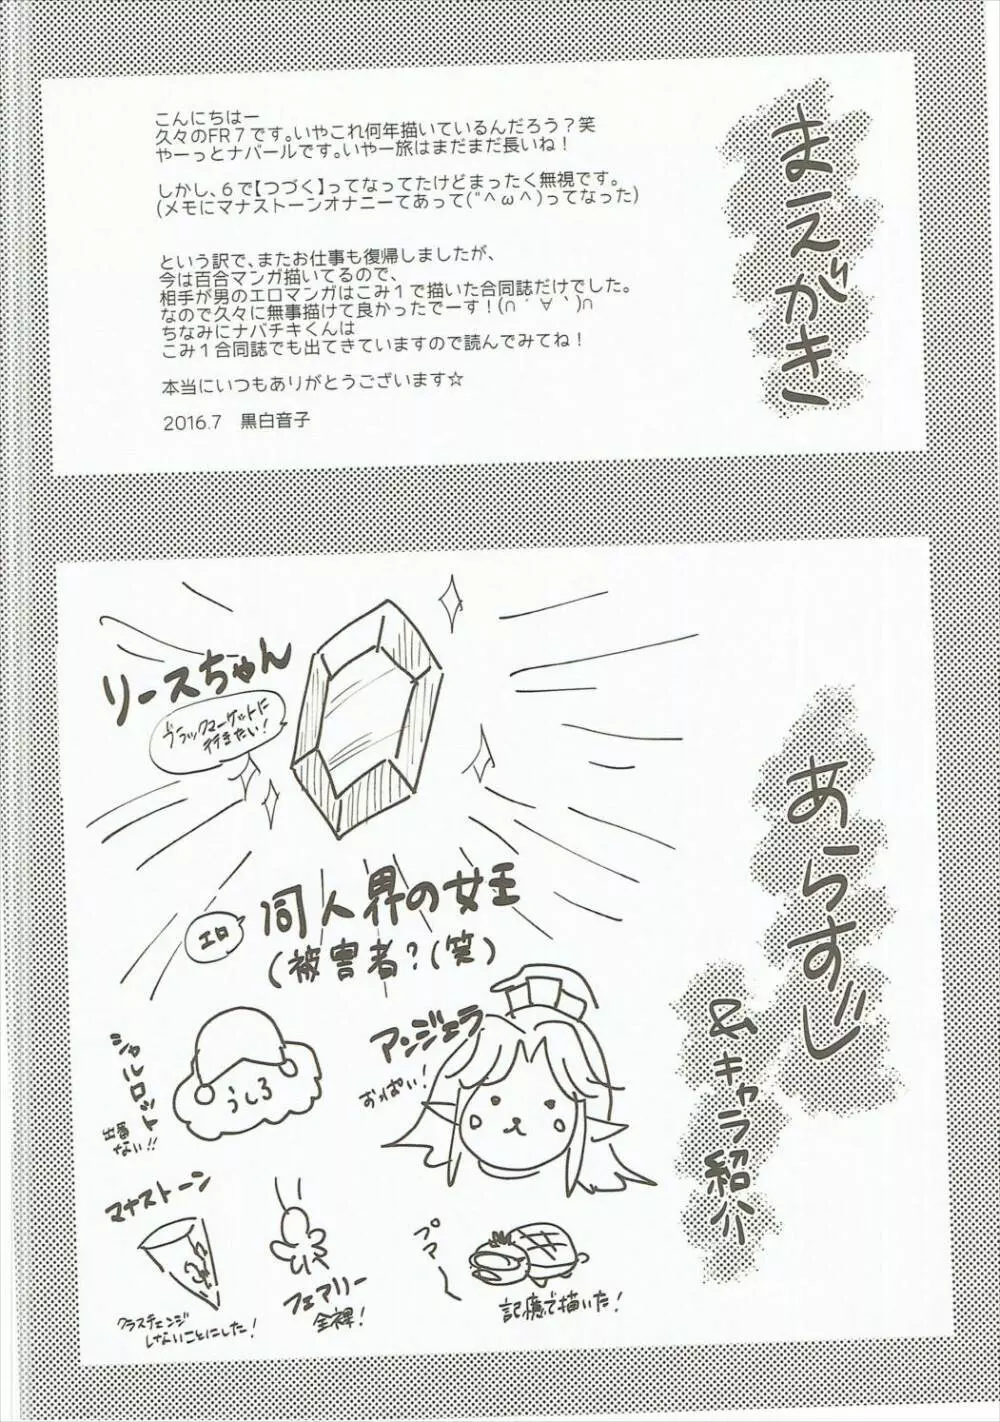 まえがき
こんにちはー
久々のFR7です。いやこれ何年描いているんだろう？笑
やーっとナバールです。いや一旅はまだまだ長いね！
しかし、6で【つづく】ってなってたけどまったく無視です。
(メモにマナストーンオナニーてあって(“^ω^)ってなった)
という訳で、またお仕事も復帰しましたが、
今は百合マンガ描いてるので、
相手が男のエロマンガはこみ1で描いた合同誌だけでした。
なので久々に無事描けて良かったでーす！(∩´∀｀)∩
ちなみにナバチキくんは
こみ1合同誌でも出てきていますので読んでみてね！
本当にいつもありがとうございます☆
2016.7　黒白音子
あらすじ
&キャラ紹介
リースちゃん
ブラックマーケットに
行きたい！
エロ
同人界の女王
(被害者？(笑)
アンジェラ
おっぱい！
シャルロット
出番
ない!!
うしろ
マナストーン
クラスチェンジ
しないことにした！
フェアリー
全裸！
ブマー
記憶で描いた！